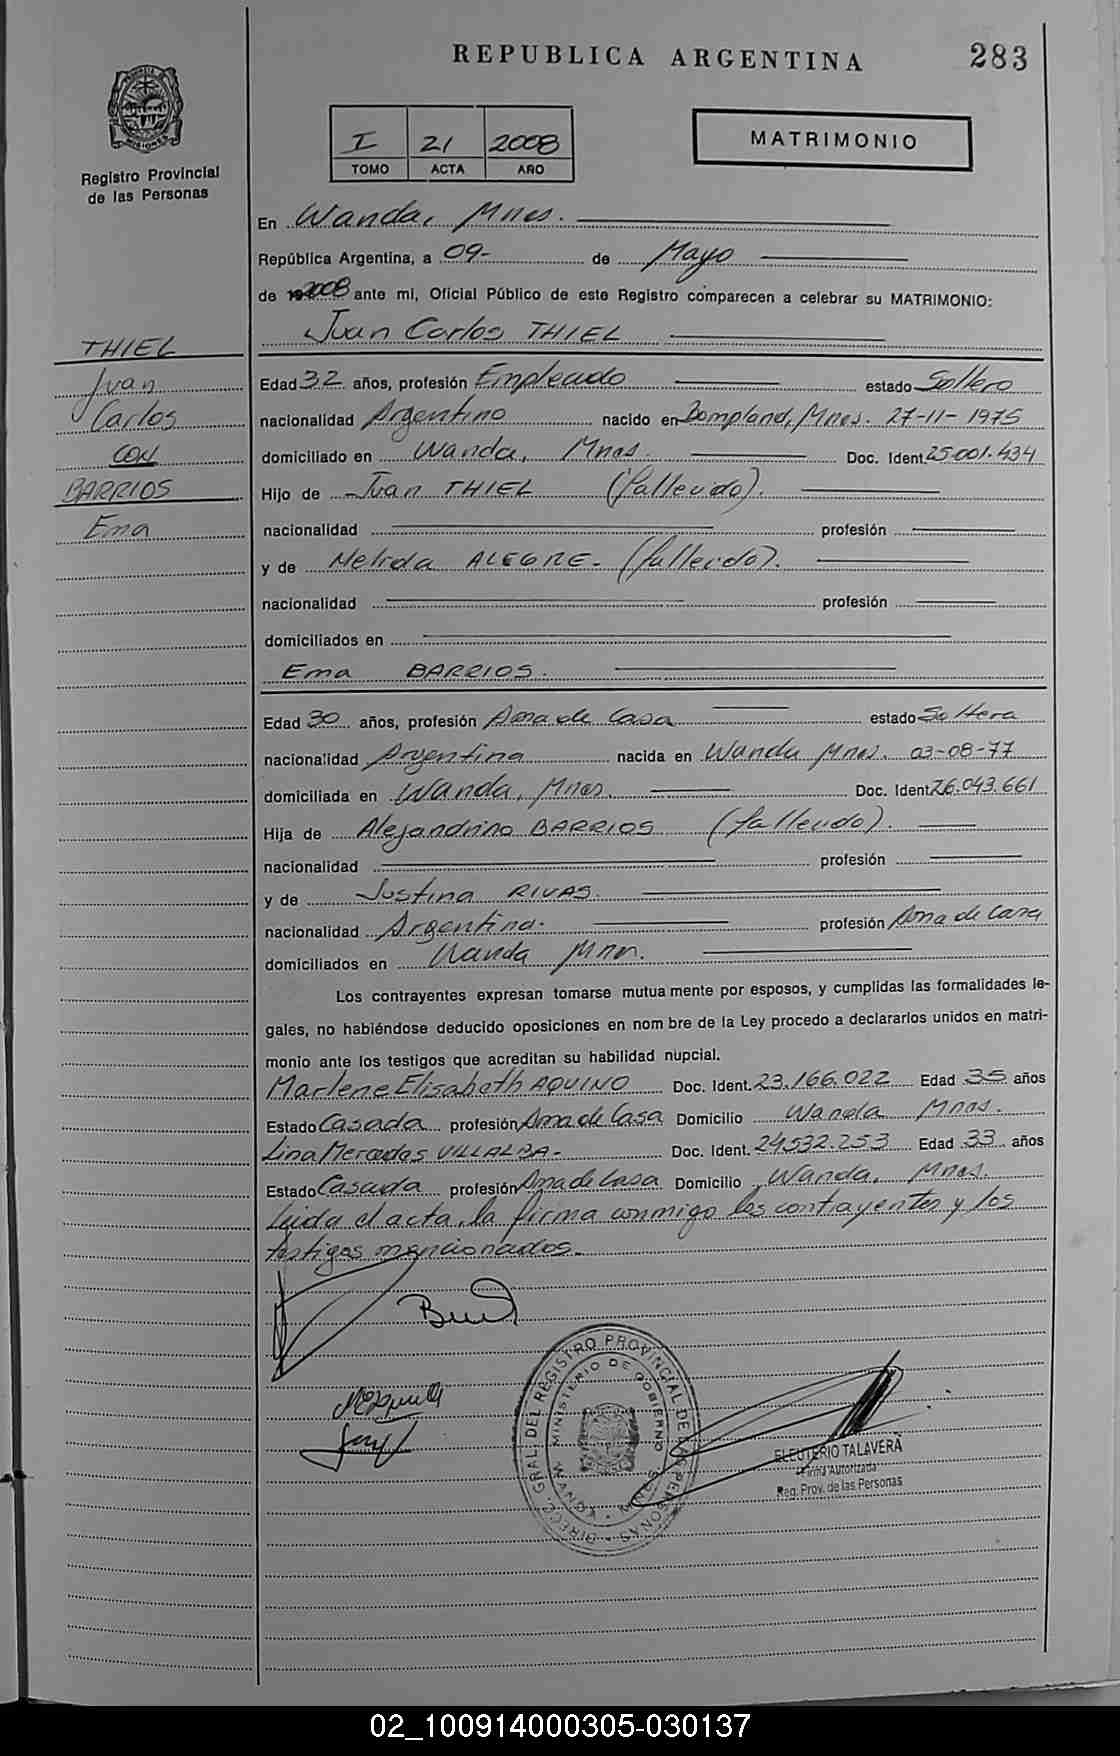 REPUBLICA ARGENTINA 283
I 21 2008
TOMO ACTA AÑO
MATRIMONIO
PROVINCIA DE MISIONES
Registro Provincial
de las Personas
En Wanda, Mnes.
República Argentina, a 09- de Mayo
de 2008 ante mi, Oficial Público de este Registro comparecen a celebrar su MATRIMONIO:
Juan Carlos THIEL
THIEL
Juan
Carlos
CON
BARRIOS
Ema
Edad 32 años, profesión Empleado estado Soltero
nacionalidad Argentino nacido en Bompland, Mnes. 27-11-1975
domiciliado en Wanda, Mnes. Doc. Ident. 25.001.434
Hijo de Juan THIEL (fallecido).
nacionalidad profesión
y de Melida ALEGRE. (fallecido).
nacionalidad profesión
domiciliados en
Ema BARRIOS.
Edad 30 años, profesión Ama de Casa estado Soltera
nacionalidad Argentina nacida en Wanda Mnes. 03-08-77
domiciliada en Wanda, Mnes. Doc. Ident. 26.043.661
Hija de Alejandrino BARRIOS (fallecido).
nacionalidad profesión
y de Justina RIVAS.
nacionalidad Argentina. profesión Ama de Casa
domiciliados en Wanda Mnes.
Los contrayentes expresan tomarse mutua mente por esposos, y cumplidas las formalidades le-
gales, no habiéndose deducido oposiciones en nom bre de la Ley procedo a declararlos unidos en matri-
monio ante los testigos que acreditan su habilidad nupcial.
Marlene Elisabeth AQUINO Doc. Ident. 23.166.022 Edad 35 años
Estado Casada profesión Ama de Casa Domicilio Wanda Mnes.
Lina Mercedes VILLALBA- Doc. Ident. 24532.253 Edad 33 años
Estado Casada profesión Ama de Casa Domicilio Wanda, Mnes.
Leida el acta, la firma conmigo los contrayentes y los
testigos mencionados.
DIRECC. GRAL. DEL REGISTRO PROVINCIAL DE LAS PERSONAS
MINISTERIO DE GOBIERNO
WANDA MNES
ELEUTERIO TALAVERA
Firma Autorizada
Reg. Prov. de las Personas
02_100914000305-030137